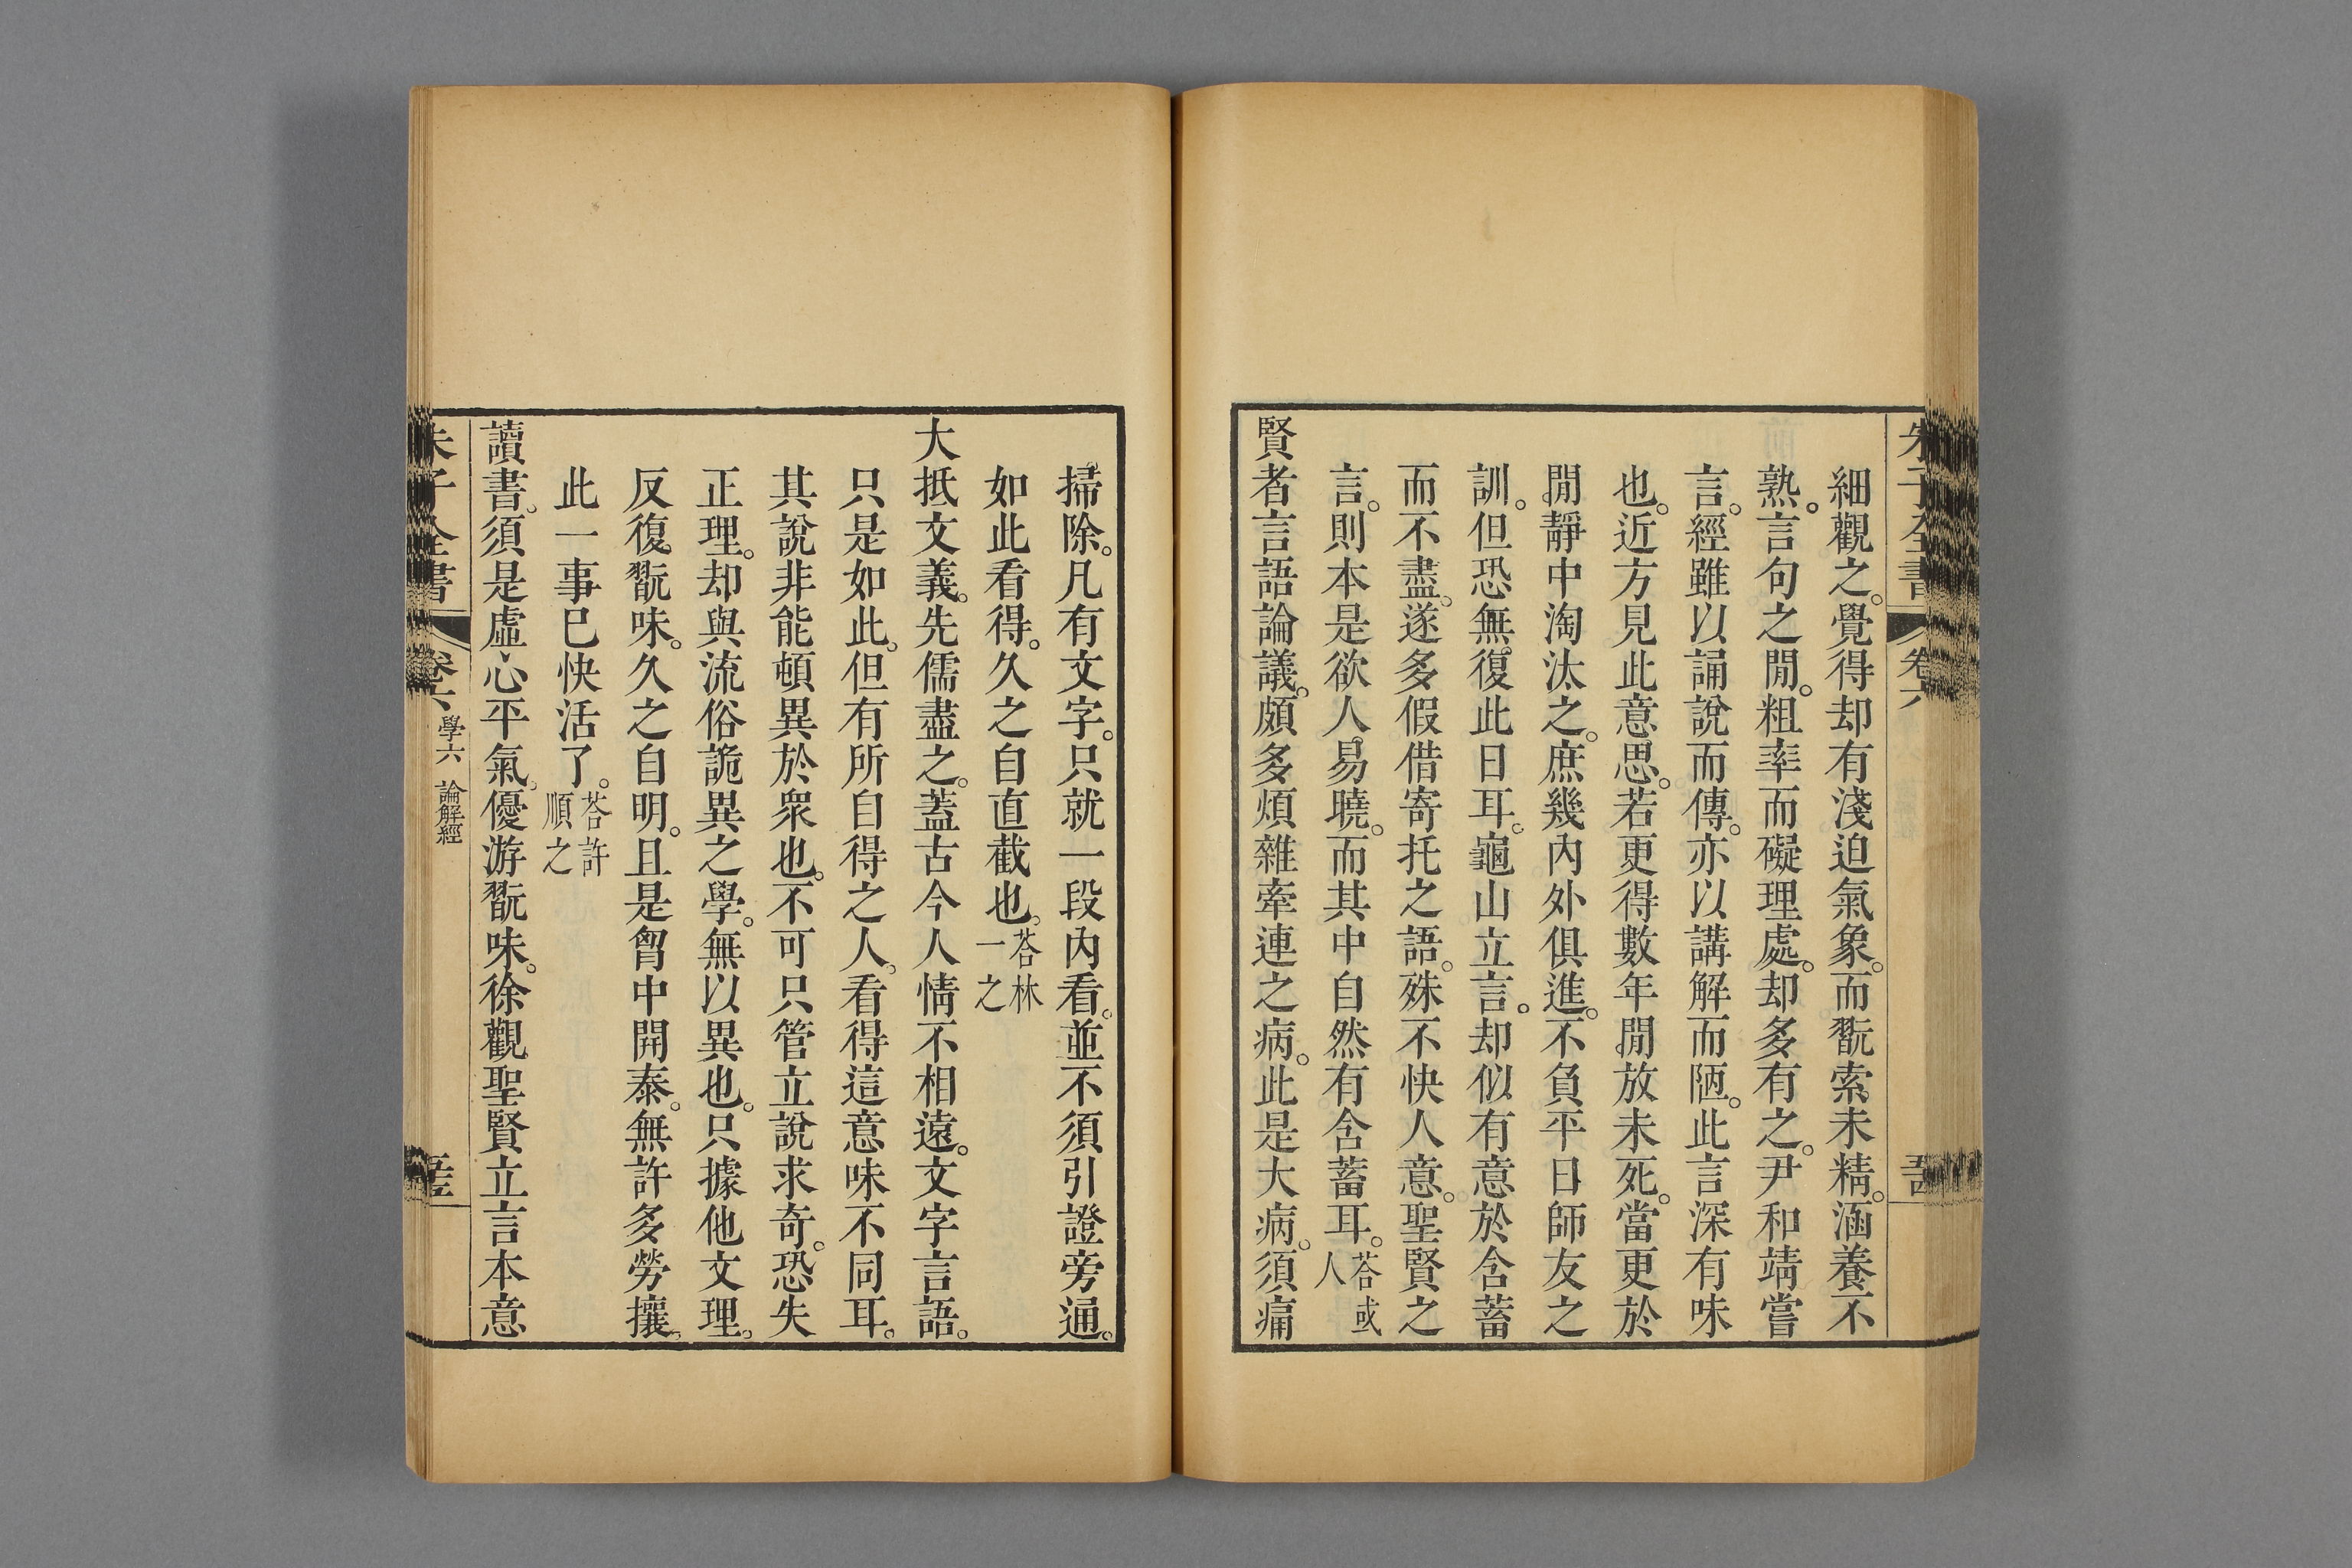 朱子全書 卷六
細觀之。覺得却有淺迫氣象。而翫索未精。涵養不
熟。言句之閒。粗率而礙理處。却多有之。尹和靖嘗
言。經雖以誦說而傳。亦以講解而陋。此言深有味
也。近方見此意思。若更得數年閒放未死。當更於
閒靜中淘汰之。庶幾內外俱進。不負平日師友之
訓。但恐無復此日耳。龜山立言。却似有意於含蓄
而不盡。遂多假借寄托之語。殊不快人意。聖賢之
言。則本是欲人易曉。而其中自然有含蓄耳。荅或人
賢者言語論議。頗多煩雜牽連之病。此是大病。須痛
掃除。凡有文字。只就一段內看。並不須引證旁通。
如此看得。久之自直截也。荅林一之
大抵文義。先儒盡之。蓋古今人情不相遠。文字言語。
只是如此。但有所自得之人。看得這意味不同耳。
其說非能頓異於衆也。不可只管立說求奇。恐失
正理。却與流俗詭異之學。無以異也。只據他文理。
反復翫味。久之自明。且是胷中開泰。無許多勞攘。
此一事已快活了。荅許順之
讀書。須是虛心平氣。優游翫味。徐觀聖賢立言本意
朱子全書 卷六 學六 論解經